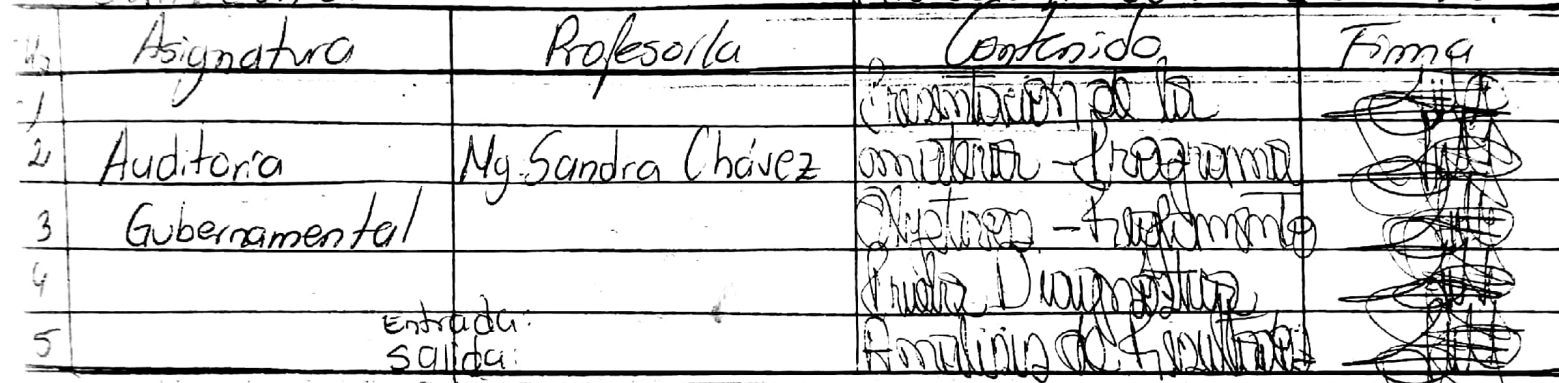 Hs Asignatura Profesor/a Contenido Firma
1 Presentación de la
2 Auditoría Mg. Sandra Chávez materia - Programa
3 Gubernamental Objetivos -
4 Prueba Diagnóstica
Entrada:
5 Análisis de Resultados
Salida: